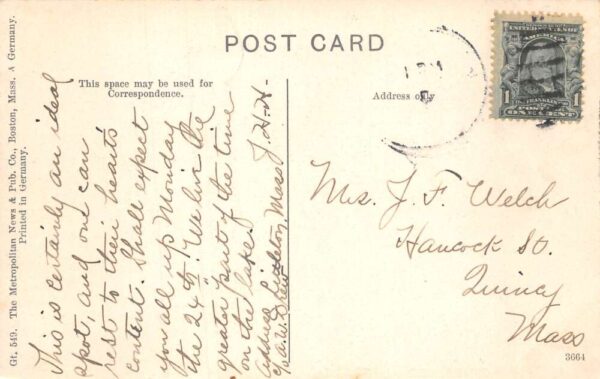 Gt. 549. The Metropolitan News & Pub. Co., Boston, Mass. & Germany.
Printed in Germany.
POST CARD
This space may be used for
Correspondence.
Address only
UNITED STATES OF
AMERICA
1
1
FRANKLIN
POSTAGE
ONE CENT
This is certainly an ideal
spot, and one can
rest to their hearts
content. Shall expect
you all up Monday
the 24th. We live the
greater part of the time
on the lake. J. H. H.
Address Littleton, Mass
c/o A. W. Drew
Mrs. J. F. Welch
Hancock St.
Quincy
Mass
3664